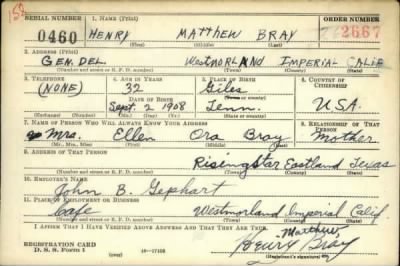 158
SERIAL NUMBER 1. NAME (Print) ORDER NUMBER
0460 HENRY MATTHEW BRAY 2667
(First) (Middle) (Last)
2. ADDRESS (Print)
GEN. DEL. Westmorland IMPERIAL CALIF
3. TELEPHONE 4. AGE IN YEARS 5. PLACE OF BIRTH 6. COUNTRY OF CITIZENSHIP
(NONE) 32 Giles
DATE OF BIRTH (Town or county)
Sept. 2 1908 Tenn. U.S.A.
7. NAME OF PERSON WHO WILL ALWAYS KNOW YOUR ADDRESS 8. RELATIONSHIP OF THAT PERSON
Mrs. Ellen Ora Bray Mother
(Mr., Mrs., Miss) (First) (Middle) (Last)
9. ADDRESS OF THAT PERSON
Rising Star Eastland Texas
(Number and street or R. F. D. number) (Town) (County) (State)
10. EMPLOYER'S NAME
John B. Gephart
11. PLACE OF EMPLOYMENT OR BUSINESS
Cafe Westmorland Imperial Calif.
(Number and street or R. F. D. number) (Town) (County) (State)
I AFFIRM THAT I HAVE VERIFIED ABOVE ANSWERS AND THAT THEY ARE TRUE.
Matthew
REGISTRATION CARD Henry Bray
D. S. S. Form 1 16-17105 (Registrant's signature)